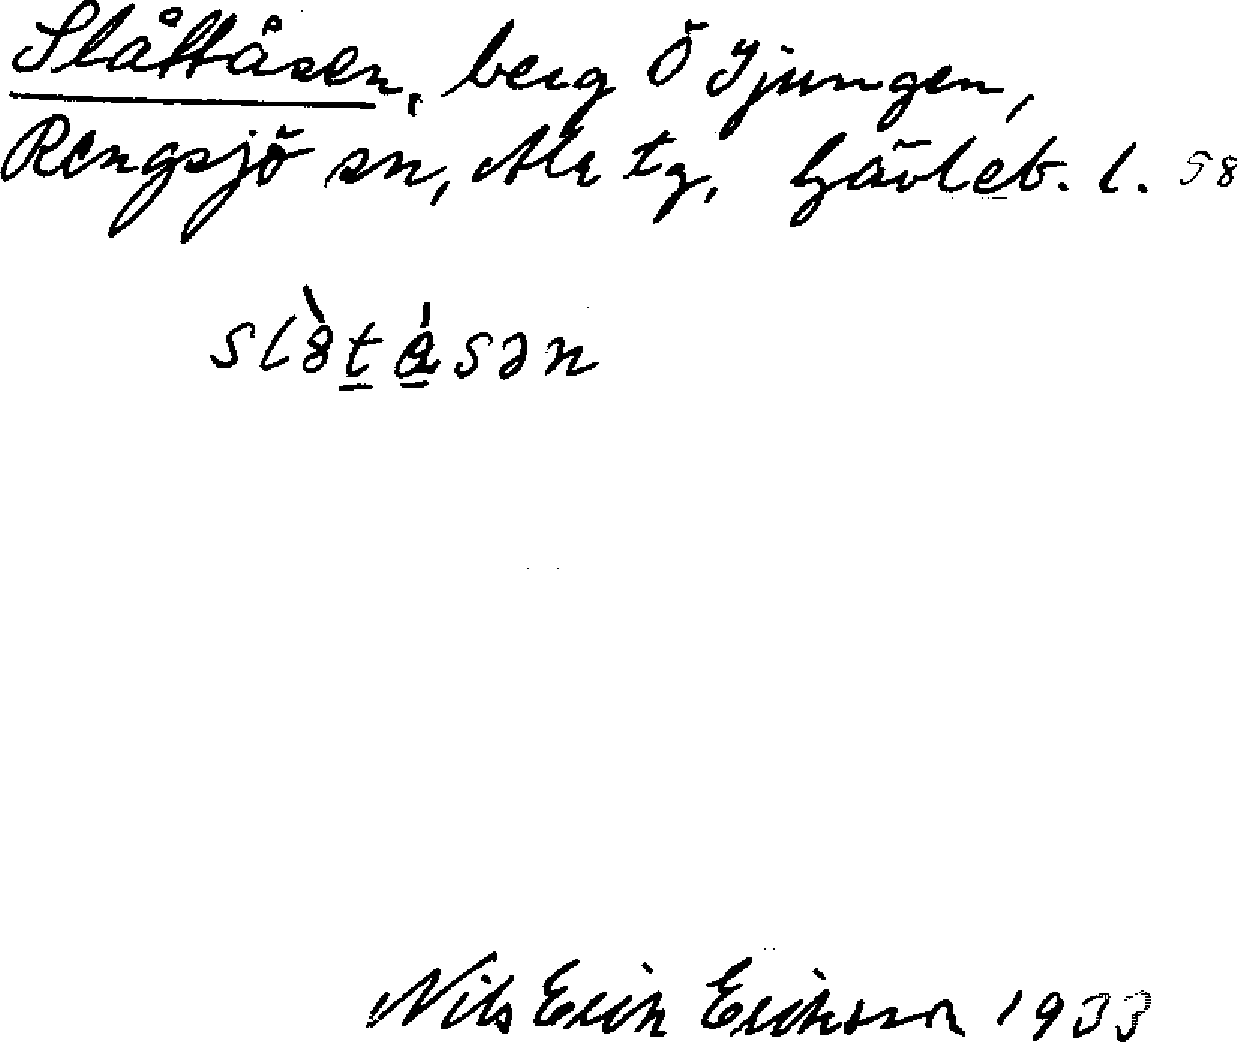 Slåttåsen, berg Ö Gjungen,
Rengsjö sn, Ala tg, Gävleb. l. 58
sl8̀tásən
Nils Erik Eriksson 1933